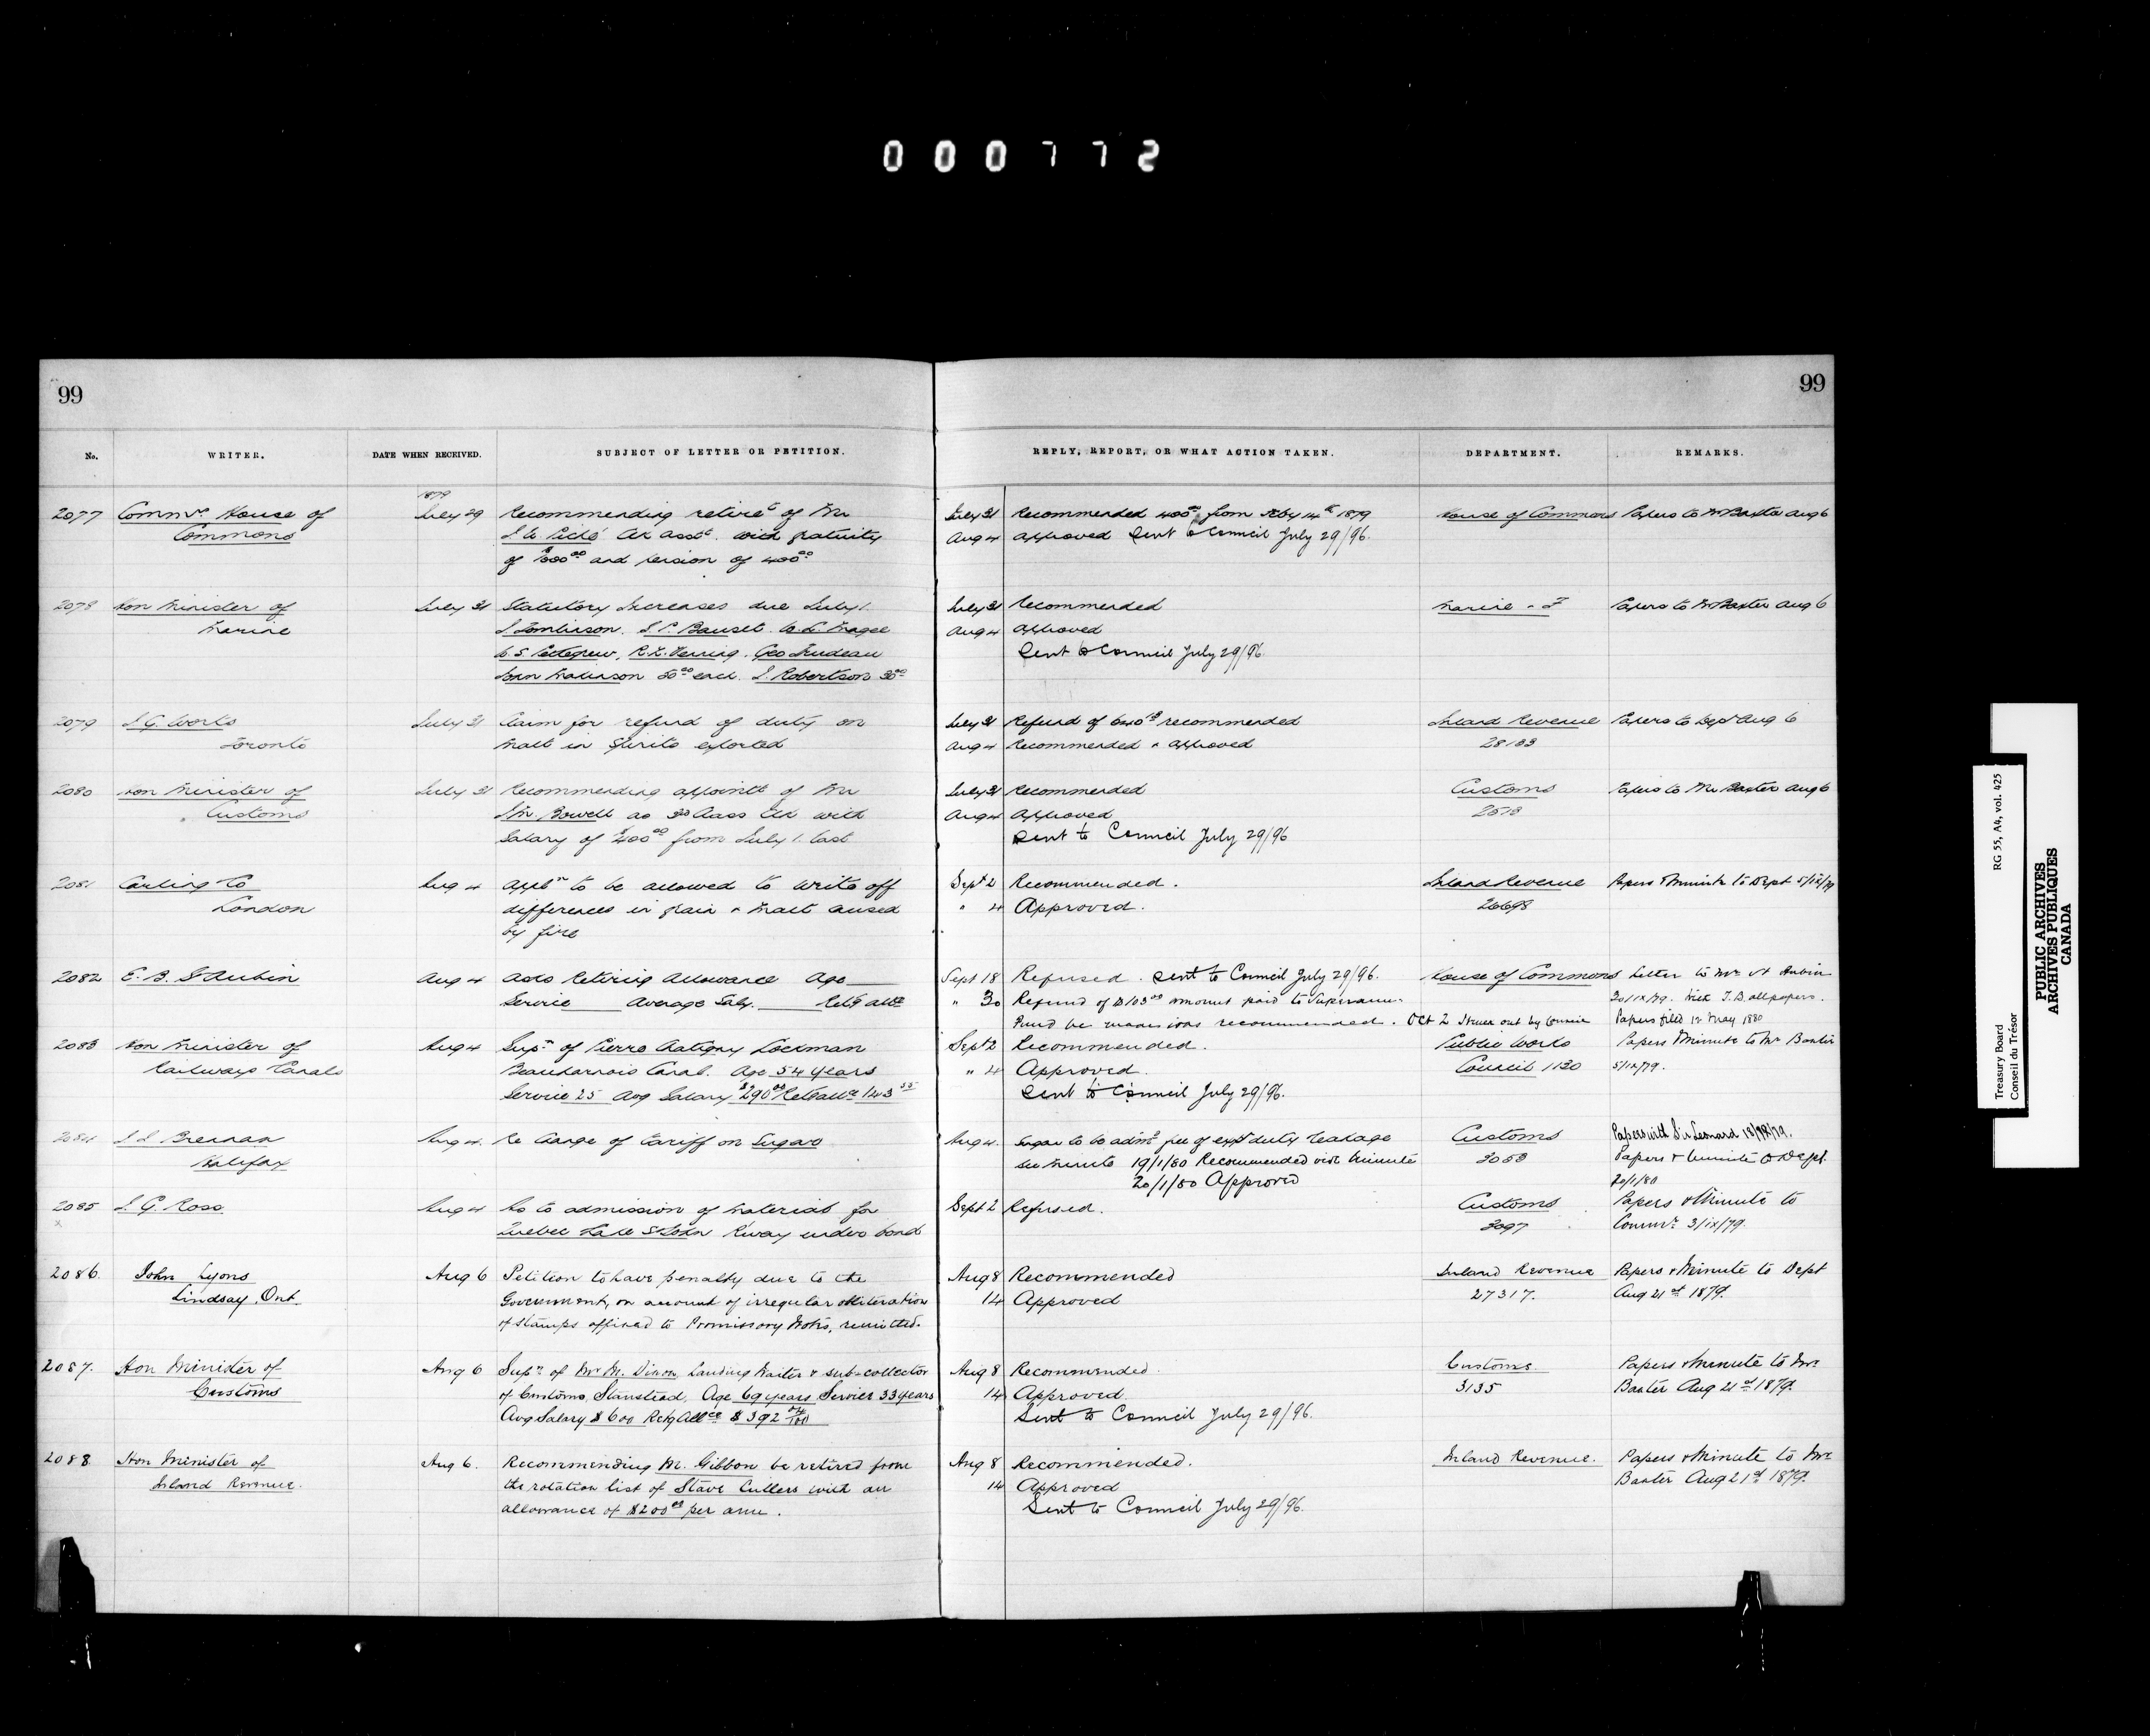 000772
99
99
No.
WRITER.
DATE WHEN RECEIVED.
SUBJECT OF LETTER OR PETITION.
REPLY, REPORT, OR WHAT ACTION TAKEN.
DEPARTMENT.
REMARKS.
1879
2077 Commrs House of July 29 Recommending retiret of Mr July 31 Recommended 400.00 from Feby 14th 1879 House of Commons Papers to Mr Baxter Aug 6
Commons Piché asst. with gratuity Aug 4 Approved Sent to Council July 29/96.
of and pension of 400.00
2078 Hon Minister of July 31 Statutory Increases due July 1. July 31 Recommended Marine & F Papers to Mr Baxter Aug 6
Marine J Tomlinson. Magee Aug 4 Approved
Geo Trudeau Sent to Council July 29/96
each. J. Robertson 30.00
2079 J. G. Worts July 31 Claim for refund of duty on July 31 Refund of recommended Inland Revenue Papers to Dept Aug 6
Toronto Malt in Spirits exported Aug 4 Recommended & approved 28133
2080 Hon Minister of July 31 Recommending appointt of Mr July 31 Recommended Customs Papers to Mr Baxter Aug 6
Customs Bowell as 3rd Class Clk with Aug 4 Approved
Salary of $400.00 from July 1. last Sent to Council July 29/96
2081 Carling Co Aug 4 Appln to be allowed to write off Sept 2 Recommended. Inland Revenue Papers & Minute to Dept 5/ix/79
London differences in grain & Malt caused " 4 Approved. 26698
by fire
2082 E. B. St Aubin Aug 4 Asks Retiring Allowance Age Sept 18 Refused. Sent to Council July 29/96. House of Commons Letter to Mr St Aubin
Service Average Saly. Retg allce " 30 Refund of $103.00 amount paid to Superann. 20/ix/79. T.B. all papers.
Fund be recommended. Oct 2 Struck out by Council Papers filed 12 May 1880
2083 Hon Minister of Aug 4 Supn of Pierre Lockman Sept 2 Recommended. Public Works Papers & Minute to Mr Baxter
Railways Canals Beauharnois Canal. Age 54 years " 4 Approved. Council 1130 5/ix/79.
Service 25 Avg Salary $290.00 Retg allce Sent to Council July 29/96.
2084 Brennan Aug 4. Re Change of tariff on Sugars Aug 4. Sugar to be admd free of duty Customs Papers with Sir Leonard
Halifax See minute 19/1/80 Recommended vide Minute 3053 Papers & Minute to Dept.
20/1/80 Approved 20/1/80
2085 J. G. Ross Aug 4 As to admission of material for Sept 2 Refused. Customs Papers & Minute to
x Quebec Lake St John R'way under bond 3097 Commr. 3/ix/79.
2086. John Lyons Aug 6 Petition to have penalty due to the Aug 8 Recommended Inland Revenue Papers & Minute to Dept
Lindsay, Ont. Government, on account of irregular obliteration 14 Approved 27317. Aug 21st 1879.
of stamps affixed to Promissory Notes, remitted.
2087. Hon Minister of Aug 6 Supn of Mr M. Dixon Landing Waiter & sub-collector Aug 8 Recommended. Customs. Papers & Minute to Mr.
Customs of Customs, Stanstead, Age 69 years Service 33 years 14 Approved. 3135 Baxter Aug 21st 1879.
Avg Salary $600 Retg Allce $392 Sent to Council July 29/96.
2088. Hon Minister of Aug 6. Recommending M. Gibbon be retired from Aug 8 Recommended. Inland Revenue. Papers & Minute to Mr
Inland Revenue. the rotation list of Stave Cullers with an 14 Approved Baxter Aug 21st 1879.
allowance of $200.00 per ann. Sent to Council July 29/96.
RG 55, A4, vol. 425
Treasury Board
Conseil du Trésor
PUBLIC ARCHIVES
ARCHIVES PUBLIQUES
CANADA